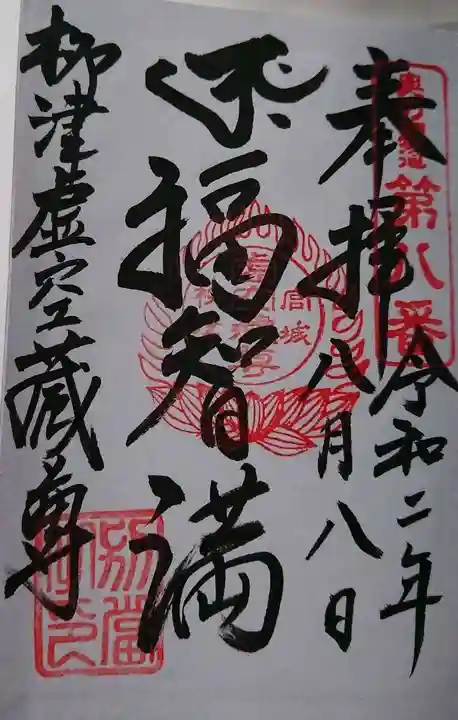 奉拝
令和二年
八月八日
福智満
柳津虚空蔵尊
第八番
別當